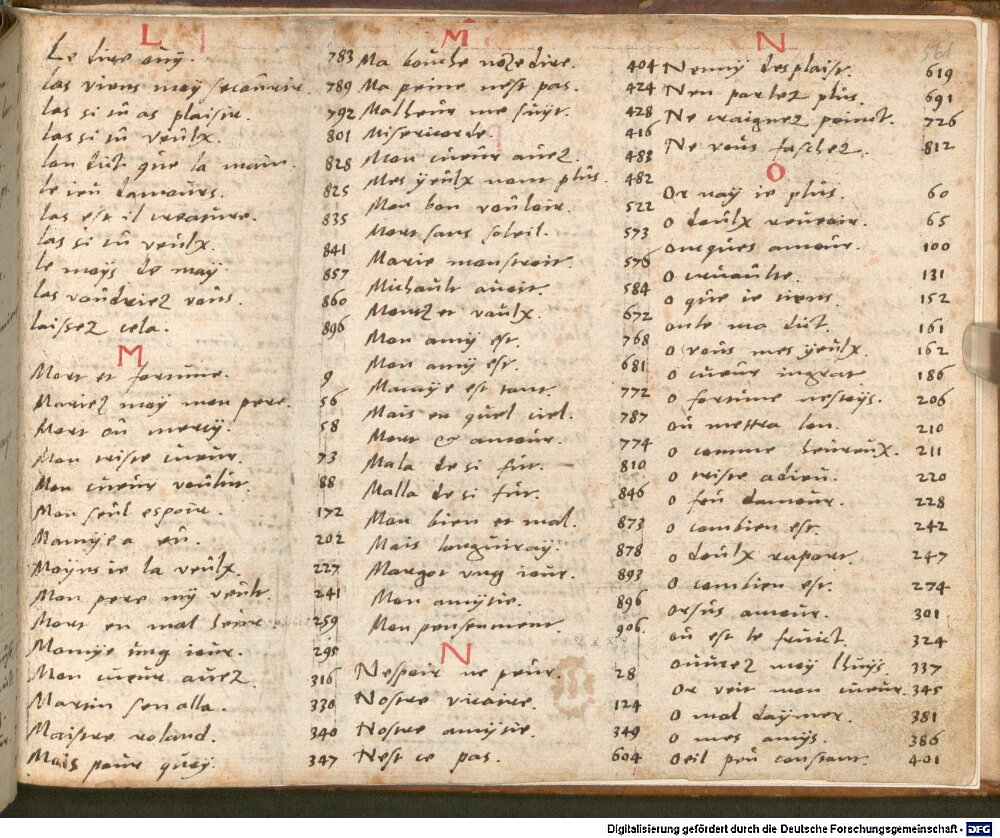 L
Le dire ouy. 783
Las viens moy secourir 789
Las si tu as plaisir. 792
Las si tu veulx. 801
Lon dict que la main. 828
le ieu damours. 825
Las est il creature. 835
Las si tu veulx. 841
le moys de may 857
Las vouldriez vous. 860
laissez cela. 896
M
Mort et fortune. 9
Mariez moy mon pere. 56
Mort ou mercy. 58
Mon triste cueur. 73
Mon cueur voulut. 88
Mon seul espoir. 172
Mamye a eu. 202
Moyns ie la veulx. 227
Mon pere my veult 241
Mort en mal heur 259
Mamye ung iour. 295
Mon cueur avez. 316
Martin sen alla. 330
Maistre roland. 340
Mais pour quoy 347
M
Ma bouche noze dire. 404
Ma peine nest pas. 424
Malheur me suyt. 428
Misericorde. 416
Mon cueur avez. 483
Mes yeulx nont plus. 482
Mon bon vouloir. 522
Mort sans soleil. 573
Marie monstroit. 576
Michault avoit. 584
Montz et vaulx. 672
Mon amy est. 768
Mon amy est. 681
Mamye est tant 772
Mais en quel ciel. 787
Mort & amour 774
Mala de si fut. 810
Malla de si fut. 846
Mon bien et mal. 873
Mais languiray. 878
Margot ung iour. 893
Mon amytie. 896
Mon pensement 906
N
Nespoir ne peur. 28
Nostre vicaire. 124
Nostre amytie. 349
Nest ce pas. 604
N
561
Nenny desplaist. 619
Nen parlez plus. 691
Ne craignez poinct. 726
Ne vous faschez. 812
O
Or nay ie plus. 60
o doulx reveoir. 65
oncques amour. 100
o cruaulte 131
o que ie tiens. 152
on te ma dict. 161
o vous mes yeulx. 162
o cueur ingrat 186
o fortune nestoys. 206
ou mettra lon. 210
o comme heureux. 211
o triste adieu. 220
o feu damour. 228
o combien est. 242
o doulx raport. 247
o combien est. 274
orsus amour. 301
ou est le fruict. 324
ouvrez moy lhuys. 337
Or voit mon cueur. 345
o mal daymer. 381
o mes amys. 386
oeil peu constant. 401
Digitalisierung gefördert durch die Deutsche Forschungsgemeinschaft - DFG